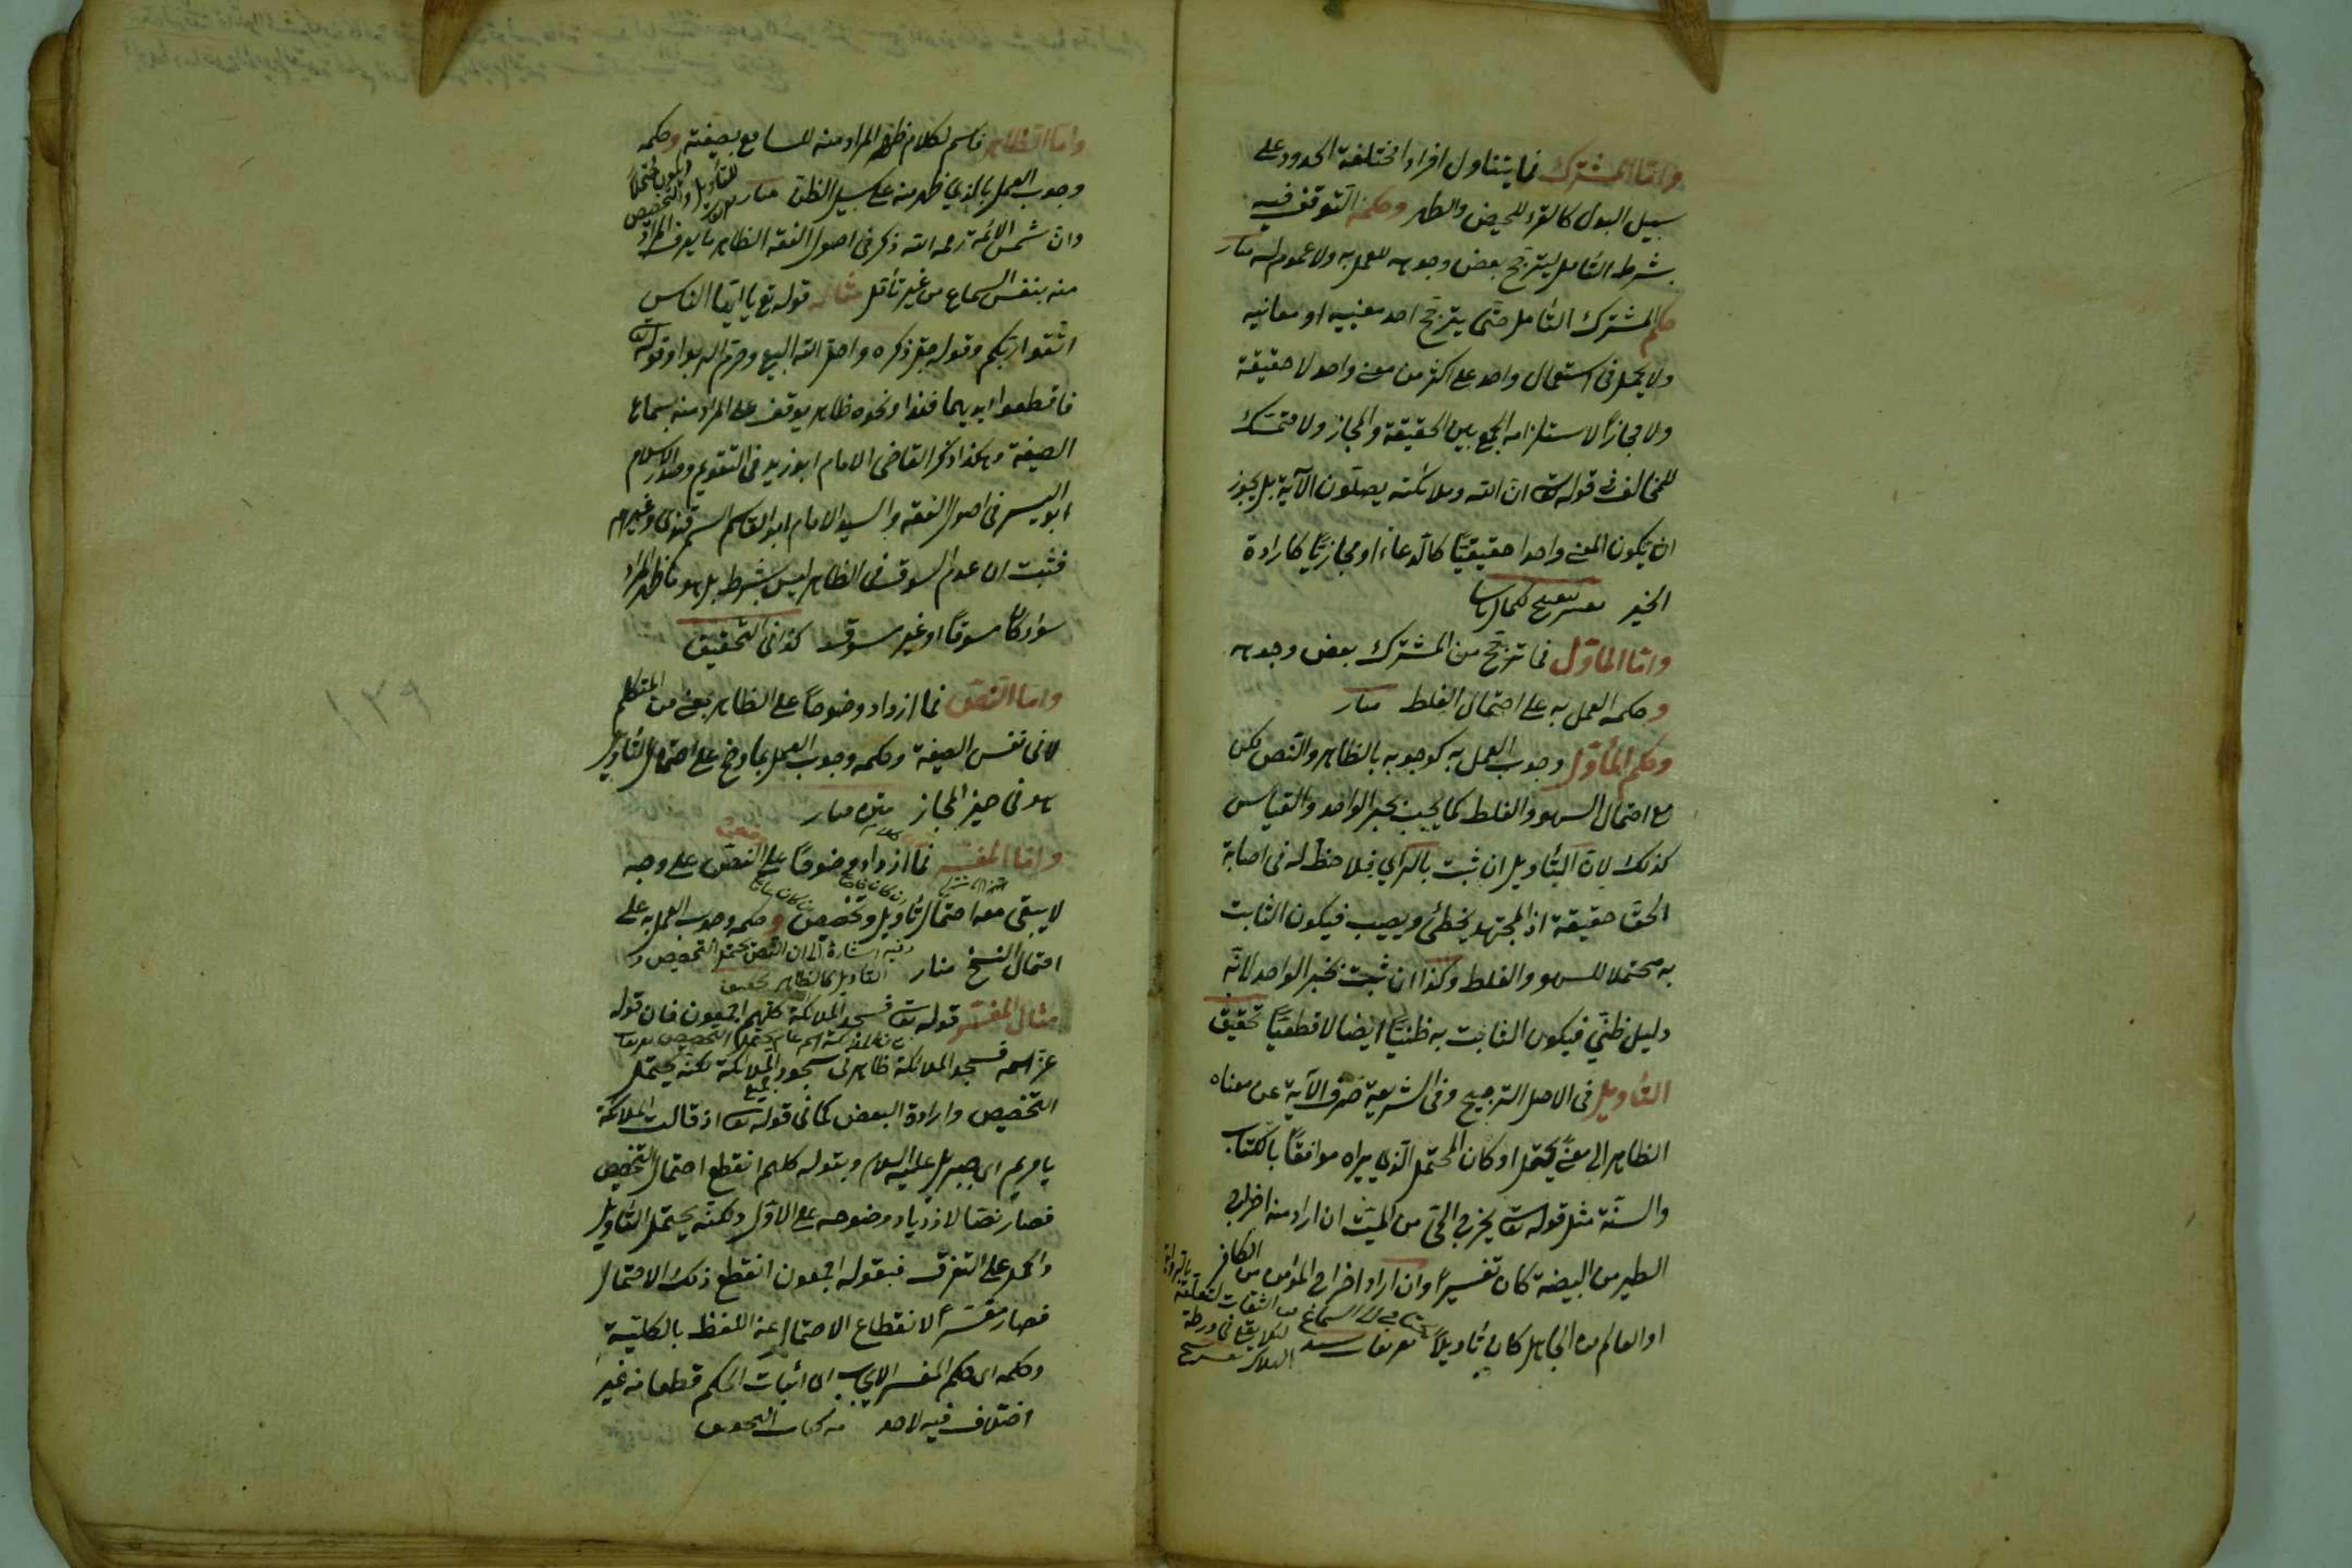 واما المشترك فما يتناول افرادا مختلفة الحدود على
سبيل البدل كالقرء للحيض والطهر وحكمه التوقف فيه
بشرط التأمل ليترجح بعض وجوهه للعمل به ولا عموم له منار
حكم المشترك التأمل حتى يترجح احد معنييه او معانيه
ولا يحمل فى استعمال واحد على اكثر من معنى واحد لا حقيقة
ولا مجازا لاستلزامه الجمع بين الحقيقة والمجاز ولا متمسك
للمخالف فى قوله تعا ان الله وملائكته يصلون الآية بل يجوز
ان يكون المعنى واحدا حقيقيا كالدعاء او مجازيا كارادة
الخير
واما المأول فما ترجح من المشترك بعض وجوهه
وحكمه العمل به على احتمال الغلط منار
وحكم المأول وجوب العمل به كوجوبه بالظاهر والنص لكن
مع احتمال السهو والغلط كما يجب بخبر الواحد والقياس
كذلك لان التأويل ان ثبت بالرأي فلا حظ له فى اصابة
الحق حقيقة اذ المجتهد يخطئ ويصيب فيكون الثابت
به محتملا للسهو والغلط وكذا ان ثبت بخبر الواحد لانه
دليل ظني فيكون الثابت به ظنيا ايضا لا قطعيا تحقيق
التأويل فى الاصل الترجيح وفى الشريعة صرف الآية عن معناه
الظاهر الى معنى يحتمل اذ كان المحتمل الذى يراه موافقا بالكتاب
والسنة مثل قوله تعا يخرج الحى من الميت ان اراد منه اخراج
الطير من البيضة كان تفسيرا وان اراد اخراج المؤمن من الكافر
او العالم من الجاهل كان تأويلا تعريفات سيد
واما الظاهر فاسم لكلام ظهر المراد منه للسامع بصيغته وحكمه
وجوب العمل بالذى ظهر منه على سبيل الظن منار
وان شمس الائمة رحمه الله ذكر فى اصول الفقه الظاهر ما يعرف المراد
منه بنفس السماع من غير تأمل مثاله قوله تع يا ايها الناس
اتقوا ربكم وقوله جل ذكره واحل الله البيع وحرم الربوا وقوله تعا
فاقطعوا ايديهما فهذا ونحوه ظاهر يوقف على المراد منه بسماع
الصيغة وهكذا ذكر القاضى الامام ابو زيد فى التقويم وصدر الاسلام
ابو اليسر فى اصول الفقه والسيد الامام ابو القاسم السمرقندى وغيرهم
فثبت ان عدم السوق فى الظاهر ليس بشرط بل هو ما ظهر المراد
سواء كان مسوقا او غير مسوق كذا فى التحقيق
واما النص فما ازداد وضوحا على الظاهر بمعنى من المتكلم
لا فى نفس الصيغة وحكمه وجوب العمل بما وضح على احتمال التأويل
هو فى حيز المجاز متن منار
واما المفسر فما ازداد وضوحا على النص على وجه
لا يبقى معه احتمال تأويل وتخصيص وحكمه وجوب العمل به على
احتمال النسخ منار
وفيه اشارة الى ان النص يحتمل التخصيص و
التأويل كالظاهر تحقيق
مثال المفسر قوله تعا فسجد الملائكة كلهم اجمعون فان قوله
عز اسمه فسجد الملائكة ظاهر فى سجود جميع الملائكة لكنه يحتمل
التخصيص وارادة البعض كما فى قوله تعا اذ قالت الملائكة
يا مريم اى جبريل عليه السلام وبقوله كلهم انقطع احتمال التخصيص
فصار نصا لازدياد وضوحه على الاول ولكنه يحتمل التأويل
والحمل على التفرق فبقوله اجمعون انقطع ذلك الاحتمال
فصار مفسرا لانقطاع الاحتمال عن اللفظ بالكلية
وحكمه اى حكم المفسر الايجاب اى اثبات الحكم قطعا من غير
اختلاف فيه لاحد من كتاب التحقيق
١٢٩